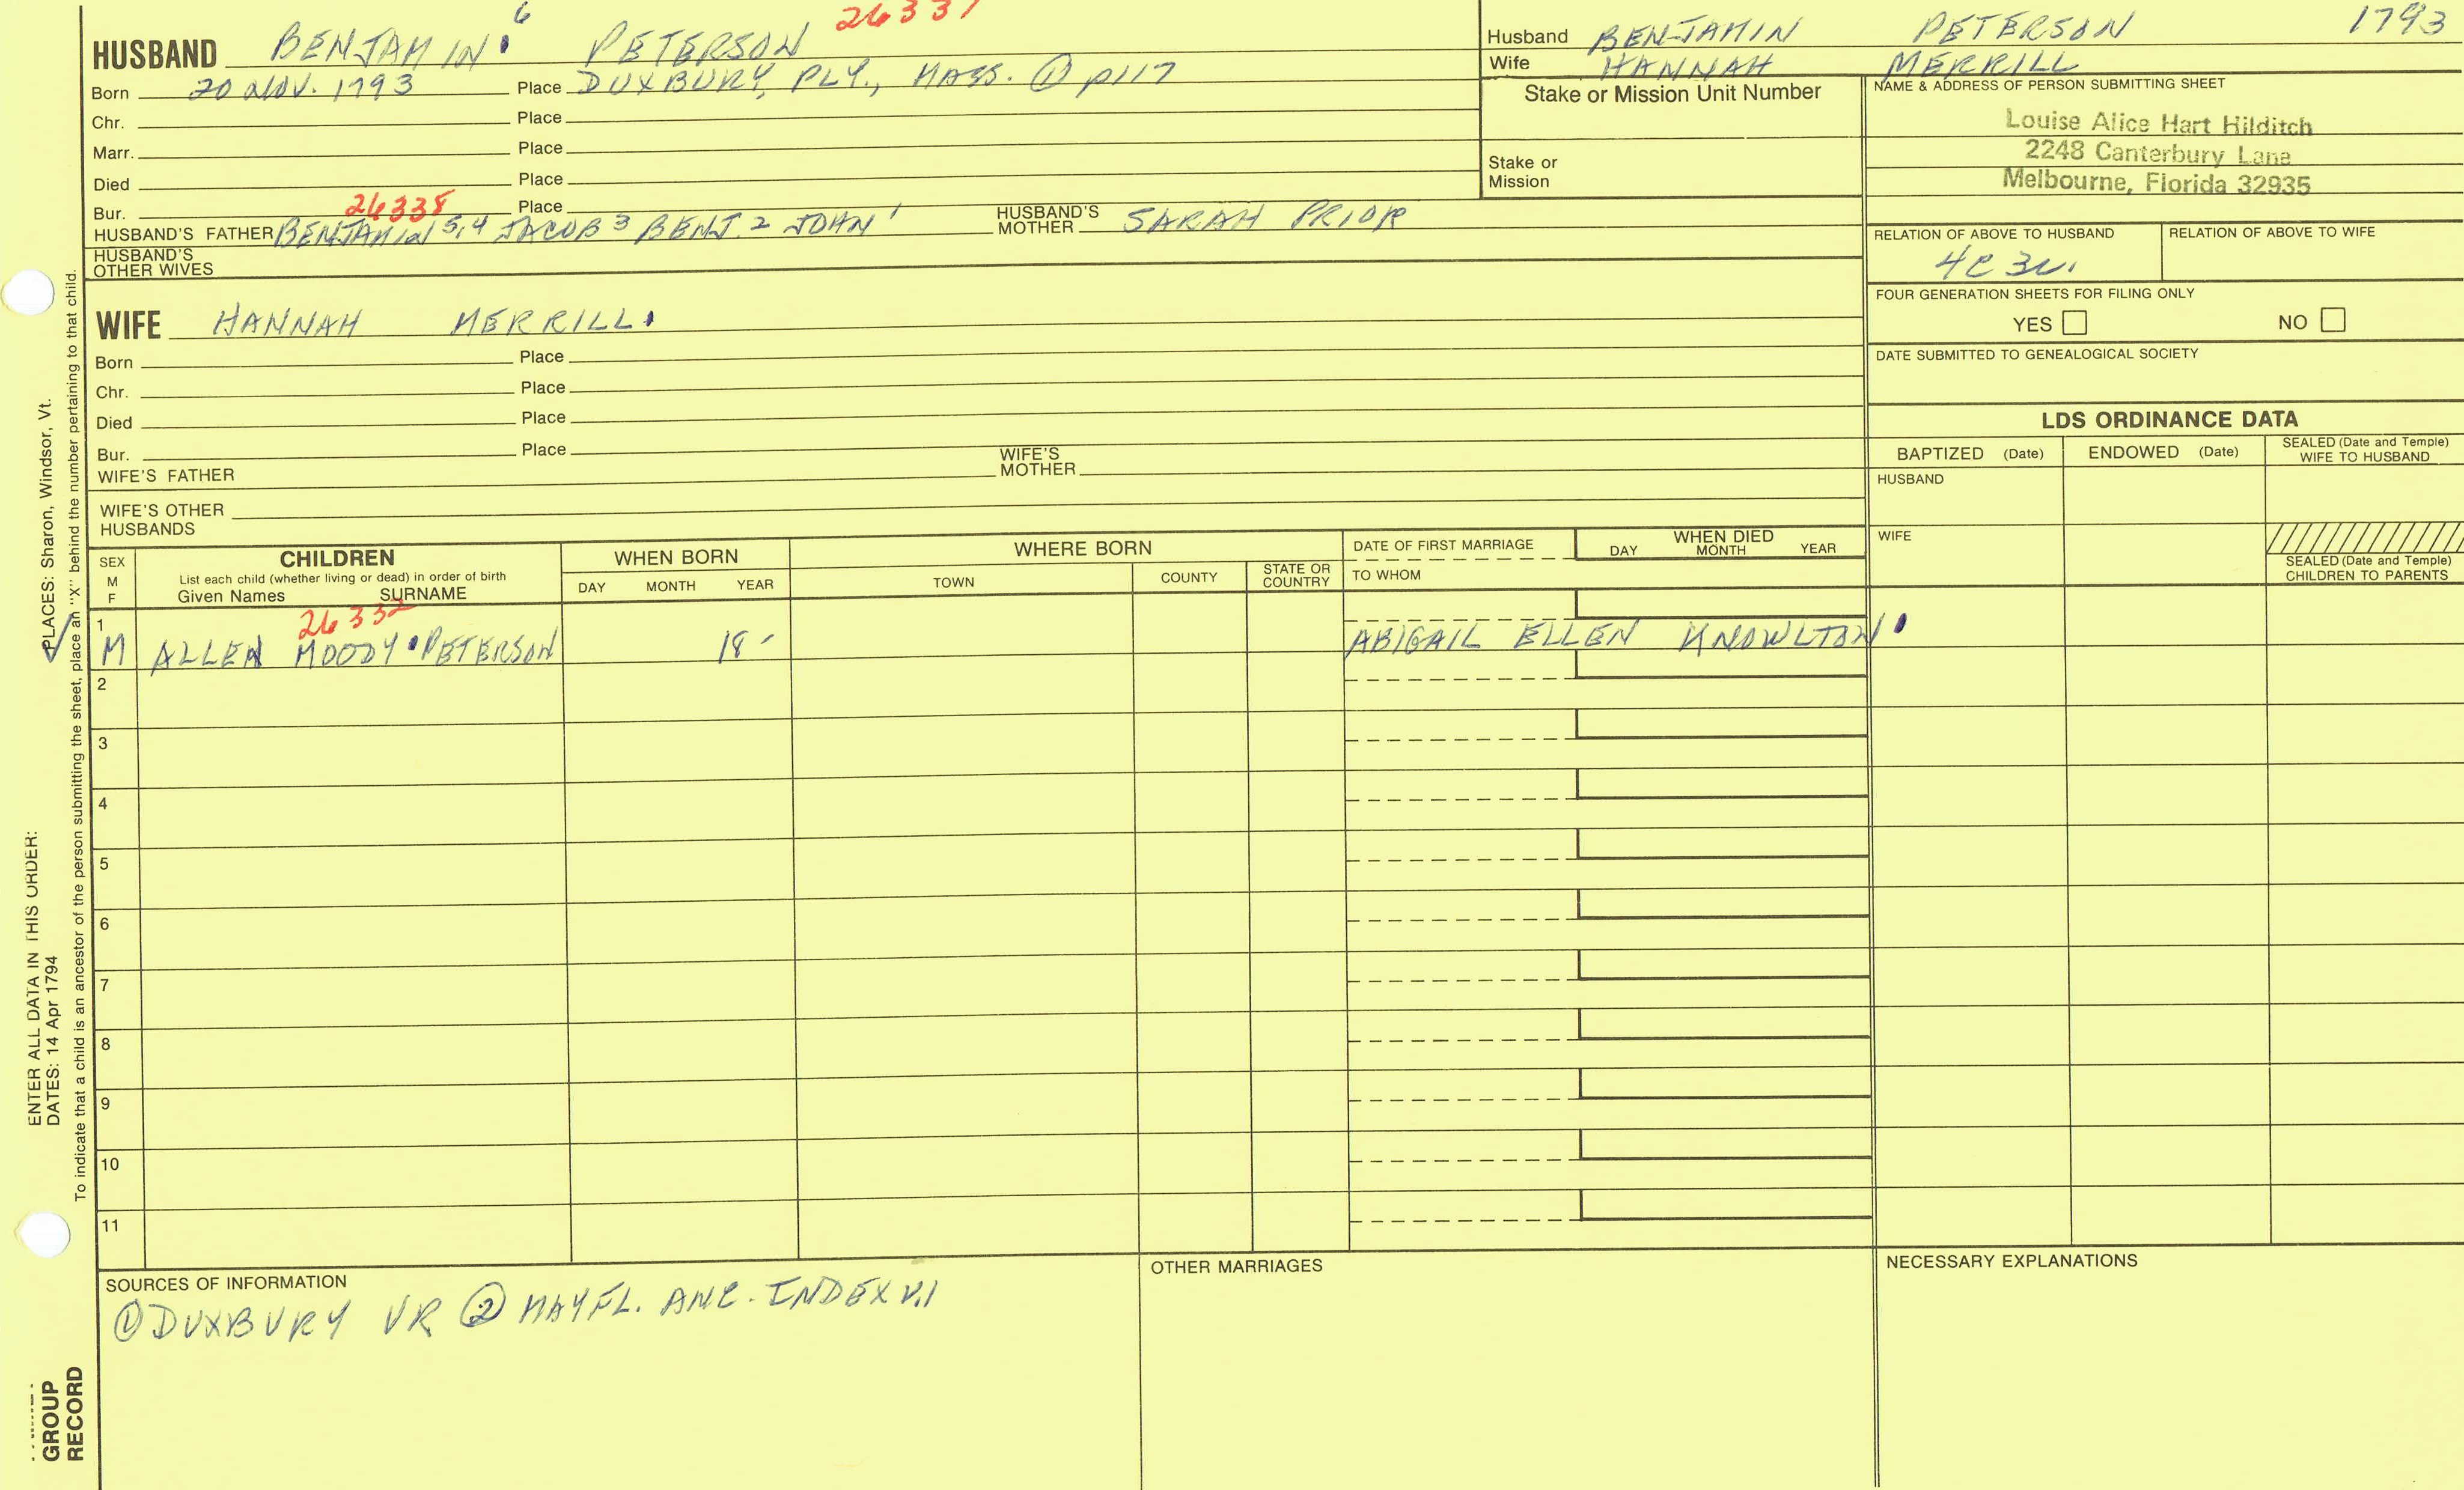 HUSBAND BENJAMIN 6 PETERSON
Born 20 NOV. 1793 Place DUXBURY, PLY., MASS. ① p117
Chr. Place
Marr. Place
Died Place
Bur. Place
26338
HUSBAND'S FATHER BENJAMIN 5,4 JACOB 3 BENJ. 2 JOHN 1 HUSBAND'S MOTHER SARAH PRIOR
HUSBAND'S OTHER WIVES
Husband BENJAMIN PETERSON 1793
Wife HANNAH MERRILL
Stake or Mission Unit Number
Stake or Mission
NAME & ADDRESS OF PERSON SUBMITTING SHEET
Louise Alice Hart Hilditch
2248 Canterbury Lane
Melbourne, Florida 32935
RELATION OF ABOVE TO HUSBAND RELATION OF ABOVE TO WIFE
FOUR GENERATION SHEETS FOR FILING ONLY
YES NO
DATE SUBMITTED TO GENEALOGICAL SOCIETY
WIFE HANNAH MERRILL
Born Place
Chr. Place
Died Place
Bur. Place
WIFE'S FATHER WIFE'S MOTHER
WIFE'S OTHER HUSBANDS
LDS ORDINANCE DATA
BAPTIZED (Date) ENDOWED (Date) SEALED (Date and Temple) WIFE TO HUSBAND
HUSBAND
WIFE
SEALED (Date and Temple) CHILDREN TO PARENTS
SEX M F
CHILDREN
List each child (whether living or dead) in order of birth
Given Names SURNAME
WHEN BORN
DAY MONTH YEAR
WHERE BORN
TOWN COUNTY STATE OR COUNTRY
DATE OF FIRST MARRIAGE
TO WHOM
WHEN DIED
DAY MONTH YEAR
26332
1 M ALLEN MOODY PETERSON 18- ABIGAIL ELLEN KNOWLTON
2
3
4
5
6
7
8
9
10
11
SOURCES OF INFORMATION
① DUXBURY VR ② MAYFL. ANC. INDEX V.1
OTHER MARRIAGES
NECESSARY EXPLANATIONS
ENTER ALL DATA IN THIS ORDER:
DATES: 14 Apr 1794 PLACES: Sharon, Windsor, Vt.
To indicate that a child is an ancestor of the person submitting the sheet, place an "X" behind the number pertaining to that child.
GROUP
RECORD